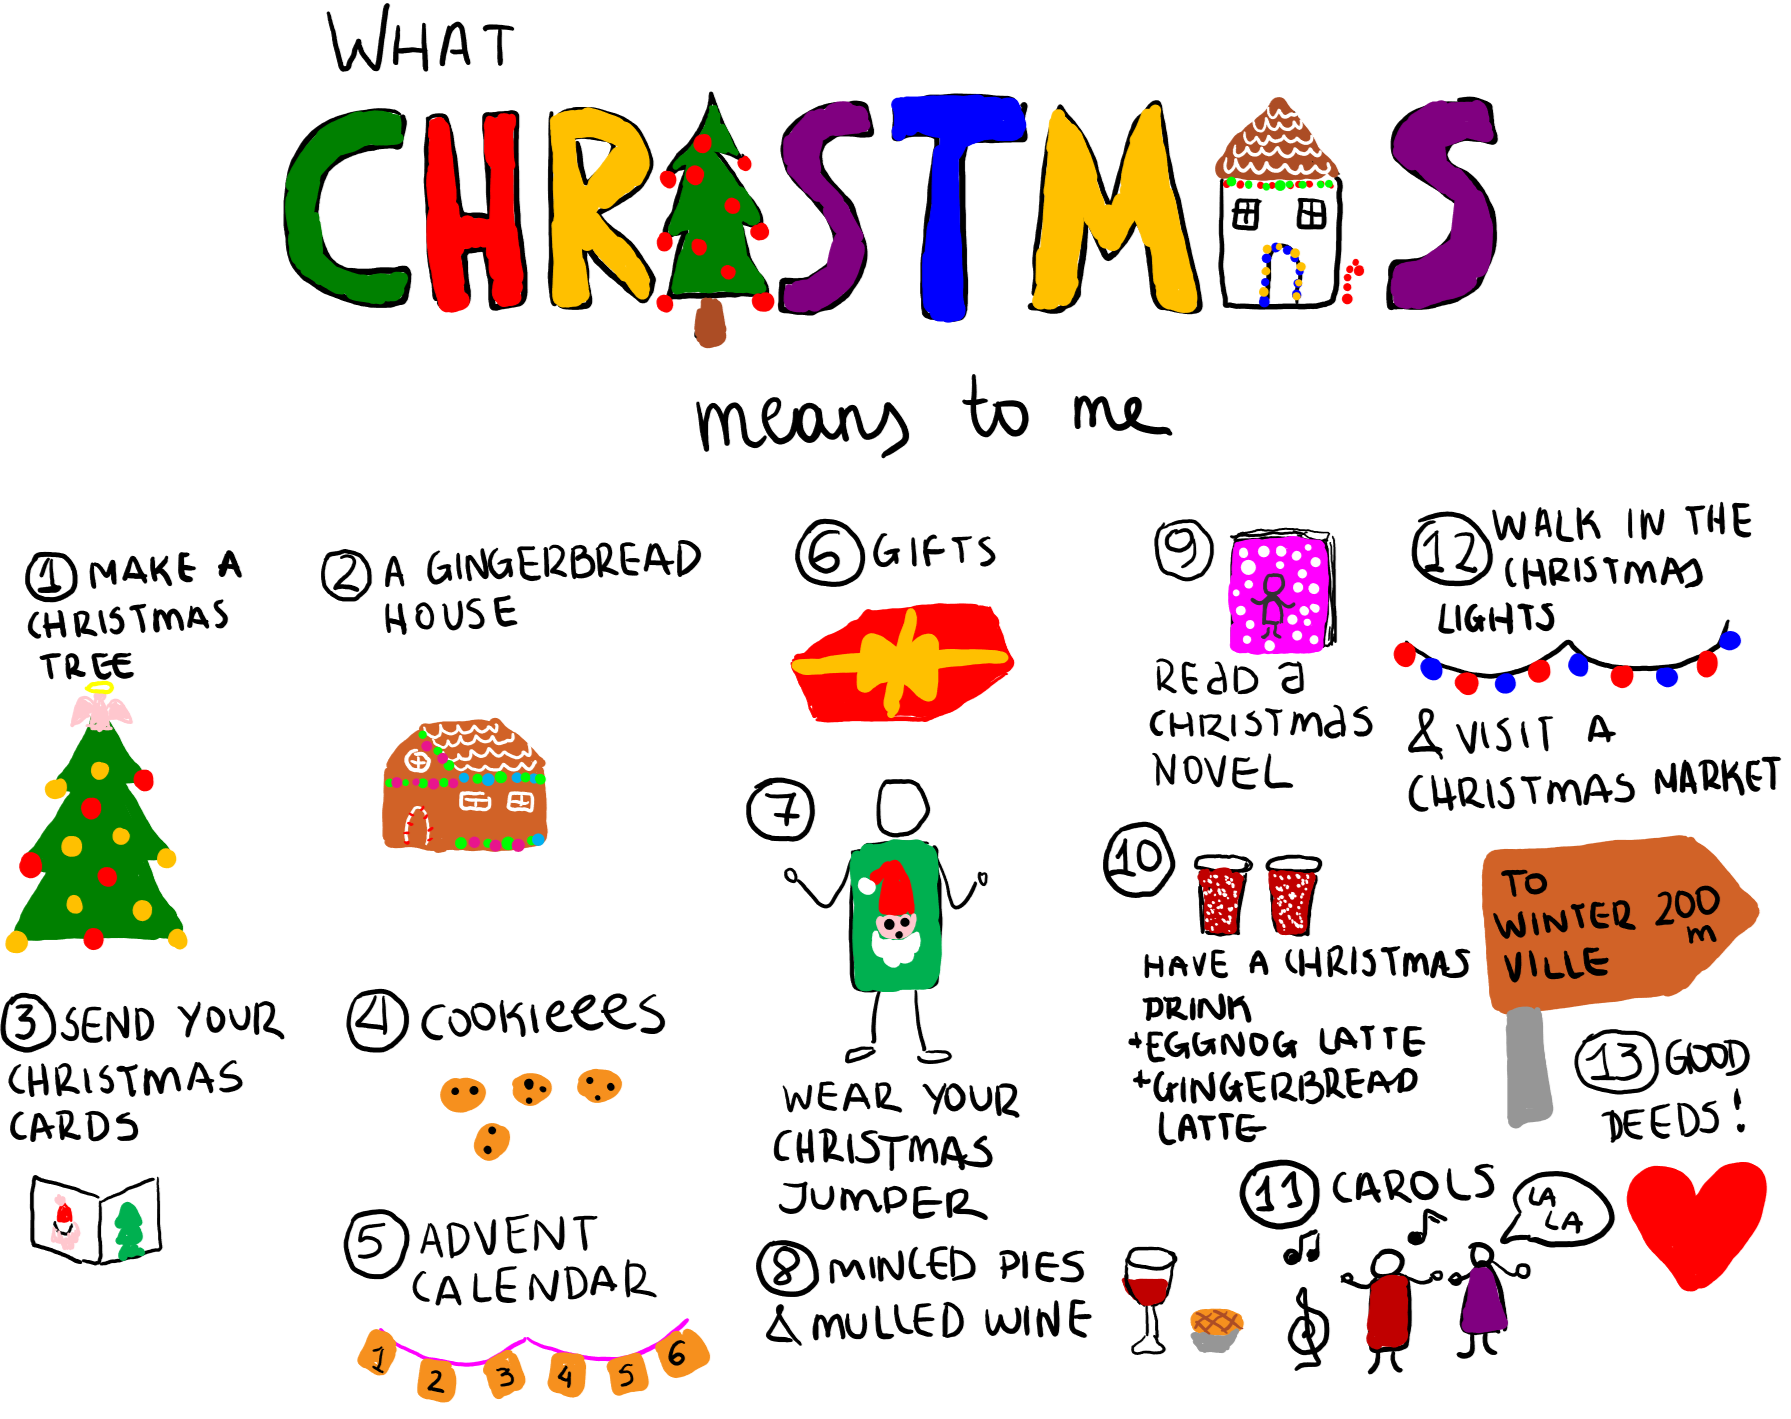 WHAT
CHRISTMAS
means to me
1 MAKE A
CHRISTMAS
TREE
2 A GINGERBREAD
HOUSE
3 SEND YOUR
CHRISTMAS
CARDS
4 COOKIEEES
5 ADVENT
CALENDAR
1 2 3 4 5 6
6 GIFTS
7
WEAR YOUR
CHRISTMAS
JUMPER
8 MINCED PIES
& MULLED WINE
9
READ A
CHRISTMAS
NOVEL
10
HAVE A CHRISTMAS
DRINK
+EGGNOG LATTE
+GINGERBREAD
LATTE
11 CAROLS
LA
LA
12 WALK IN THE
CHRISTMAS
LIGHTS
& VISIT A
CHRISTMAS MARKET
TO
WINTER 200
m
VILLE
13 GOOD
DEEDS!